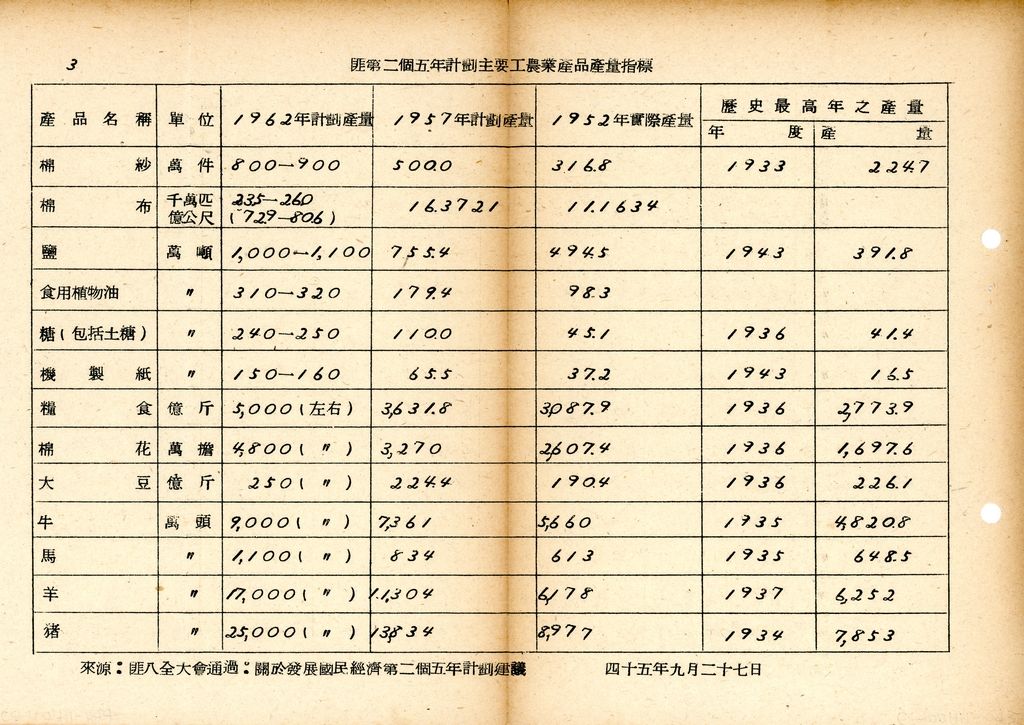 3
匪第二個五年計劃主要工農業產品產量指標
產品名稱 單位 1962年計劃產量 1957年計劃產量 1952年實際產量 歷史最高年之產量
年度 產量
棉紗 萬件 800—900 500.0 316.8 1933 224.7
棉布 千萬匹 235—260 16.3721 11.1634
億公尺 (72.9—80.6)
鹽 萬噸 1,000—1,100 755.4 494.5 1943 391.8
食用植物油 〃 310—320 179.4 98.3
糖(包括土糖) 〃 240—250 110.0 45.1 1936 41.4
機製紙 〃 150—160 65.5 37.2 1943 16.5
糧食 億斤 5,000(左右) 3,631.8 3,087.9 1936 2,773.9
棉花 萬擔 4,800(〃) 3,270 2,607.4 1936 1,697.6
大豆 億斤 250(〃) 224.4 190.4 1936 226.1
牛 萬頭 9,000(〃) 7,361 5,660 1935 4,820.8
馬 〃 1,100(〃) 834 613 1935 648.5
羊 〃 17,000(〃) 11,304 6,178 1937 6,252
猪 〃 25,000(〃) 13,834 8,977 1934 7,853
來源：匪八全大會通過：關於發展國民經濟第二個五年計劃建議 四十五年九月二十七日